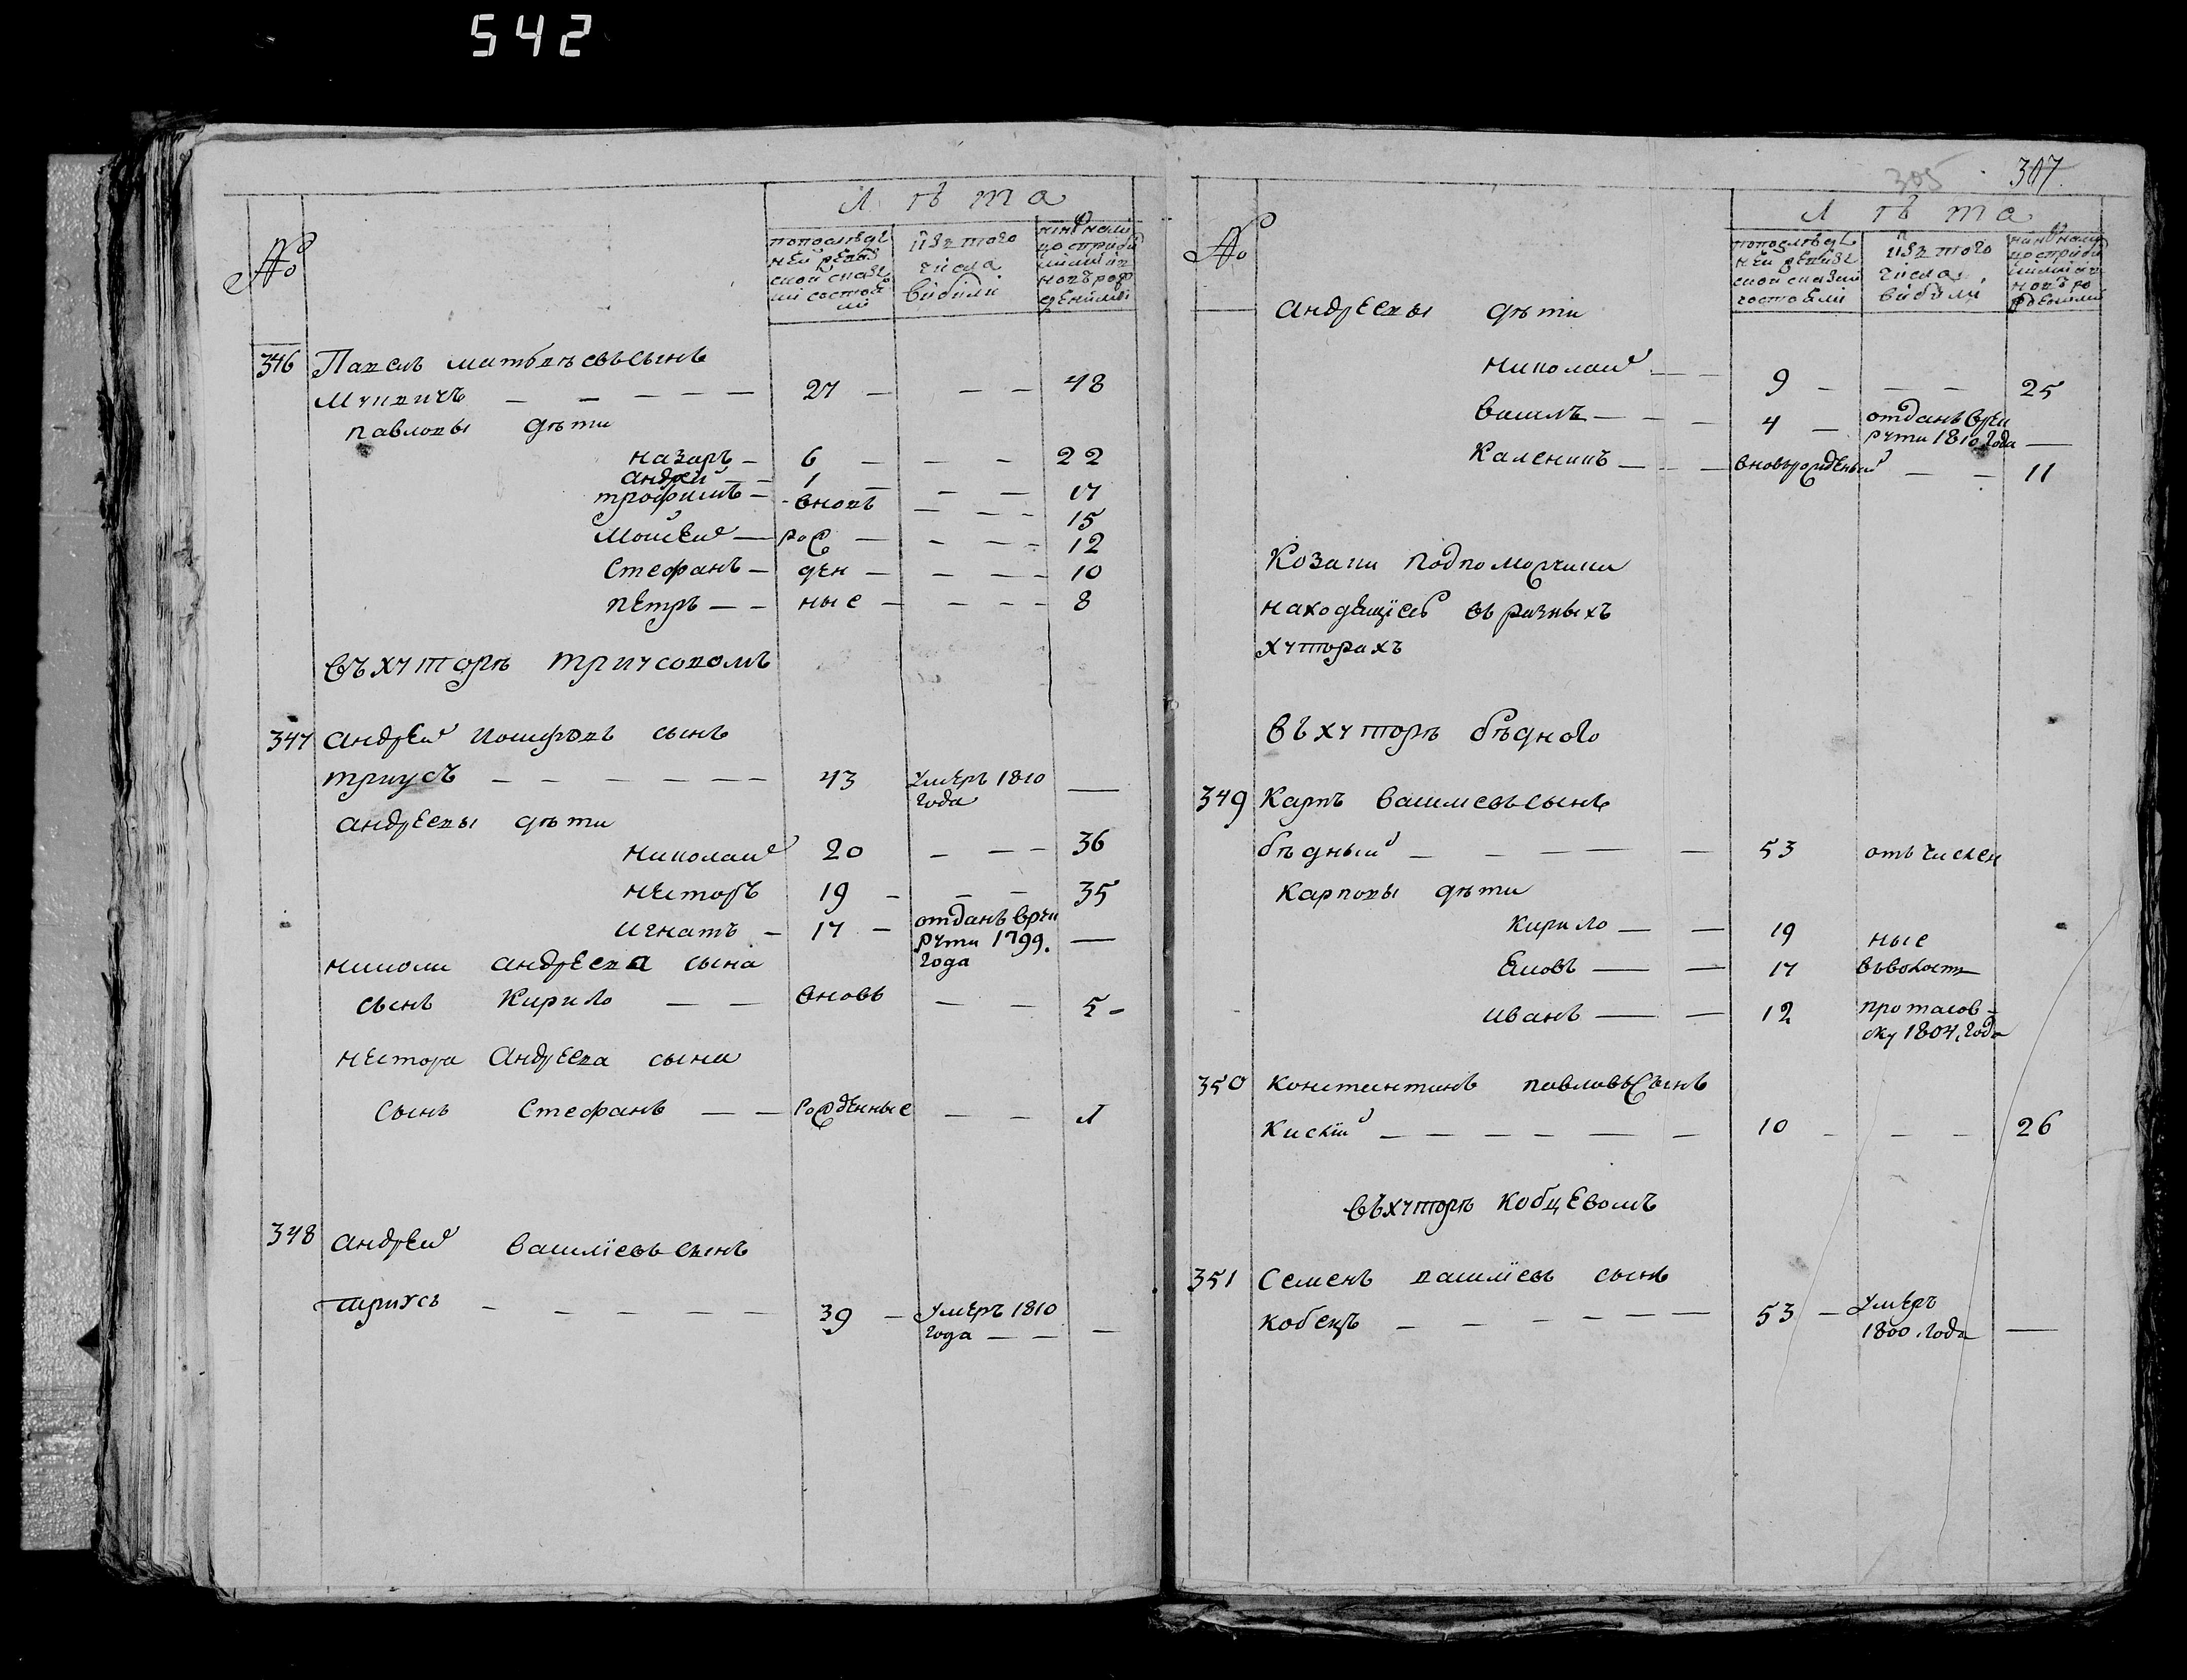 542
Лѣта
№
попослѣдъ
ней ревиз
ской сказъ
ки состоя
ли
изъ того
числа
выбыли
346 Павелъ матвѣевъ сынъ
Мучичъ — — — — — 27 — — — 48
павловы дѣти
назаръ — 6 — — — 22
андрей — — 1 — — — 17
трофимъ — вновь — — — 15
Мойсей — рож — — — — 12
Стефанъ — ден — — — — 10
петръ — — ные — — — — 8
въ хуторѣ триусовомъ
347 андрей иосифовъ сынъ
триусъ — — — — — — 43 умеръ 1810 года —
андреевы дѣти
николай 20 — — — 36
несторъ 19 — — — 35
игнатъ — 17 — отданъ врек
руты 1799. года —
николы андреева сына
сынъ Кирило — — вновь — — 5 —
нестора андреева сына
сынъ Стефанъ — — рожденные — — 1
348 андрей василіевъ сынъ
триусъ — — — — — 39 — умеръ 1810
года — — —
305 307.
Лѣта
№
попослѣдъ
ней ревиз
ской сказки
состояли
изъ того
числа
выбыли
андреевы дѣти
николай — — 9 — — — 25
василь — — — 4 — отданъ врек
руты 1810 года —
Каленикъ — — — вновьрожденный — — 11
Козаки подпомощники
находящіесь въ разныхъ
хуторахъ
въ хуторѣ бѣдного
349 Карпъ василевъ сынъ
бѣдный — — — — 53 отъ числен
карповы дѣти
кирило — — 19 ные
Яковъ — — 17 въ волость
иванъ — — 12 протасов-
ску 1804. года
350 констинтинъ павловъ сынъ
Кискій — — — — — — 10 — — — 26
въ хуторѣ кобцевомъ
351 Семенъ василіевъ сынъ
кобецъ — — — — — — 53 — умеръ
1800. года —